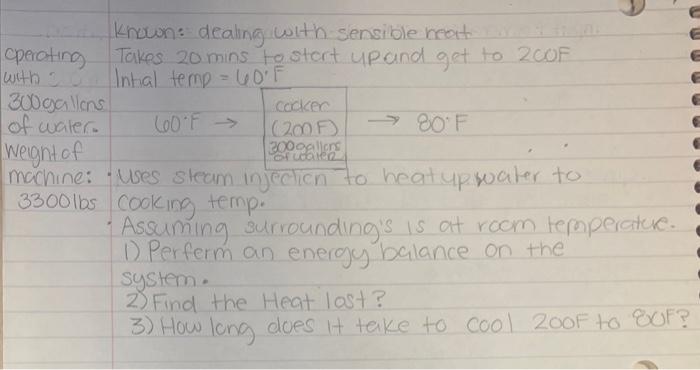 Known: dealing with sensible heat
operating with
300 gallons of water.
Weight of machine:
3300 lbs
Takes 20 mins to start up and get to 200F
Intial temp = 60°F
60°F → cocker (200F) 300 gallons of water → 80°F
• Uses steam injection to heat up water to
cooking temp.
• Assuming surrounding's is at room temperature.
1) Perferm an energy balance on the
system.
2) Find the Heat lost?
3) How long does it take to cool 200F to 80F?